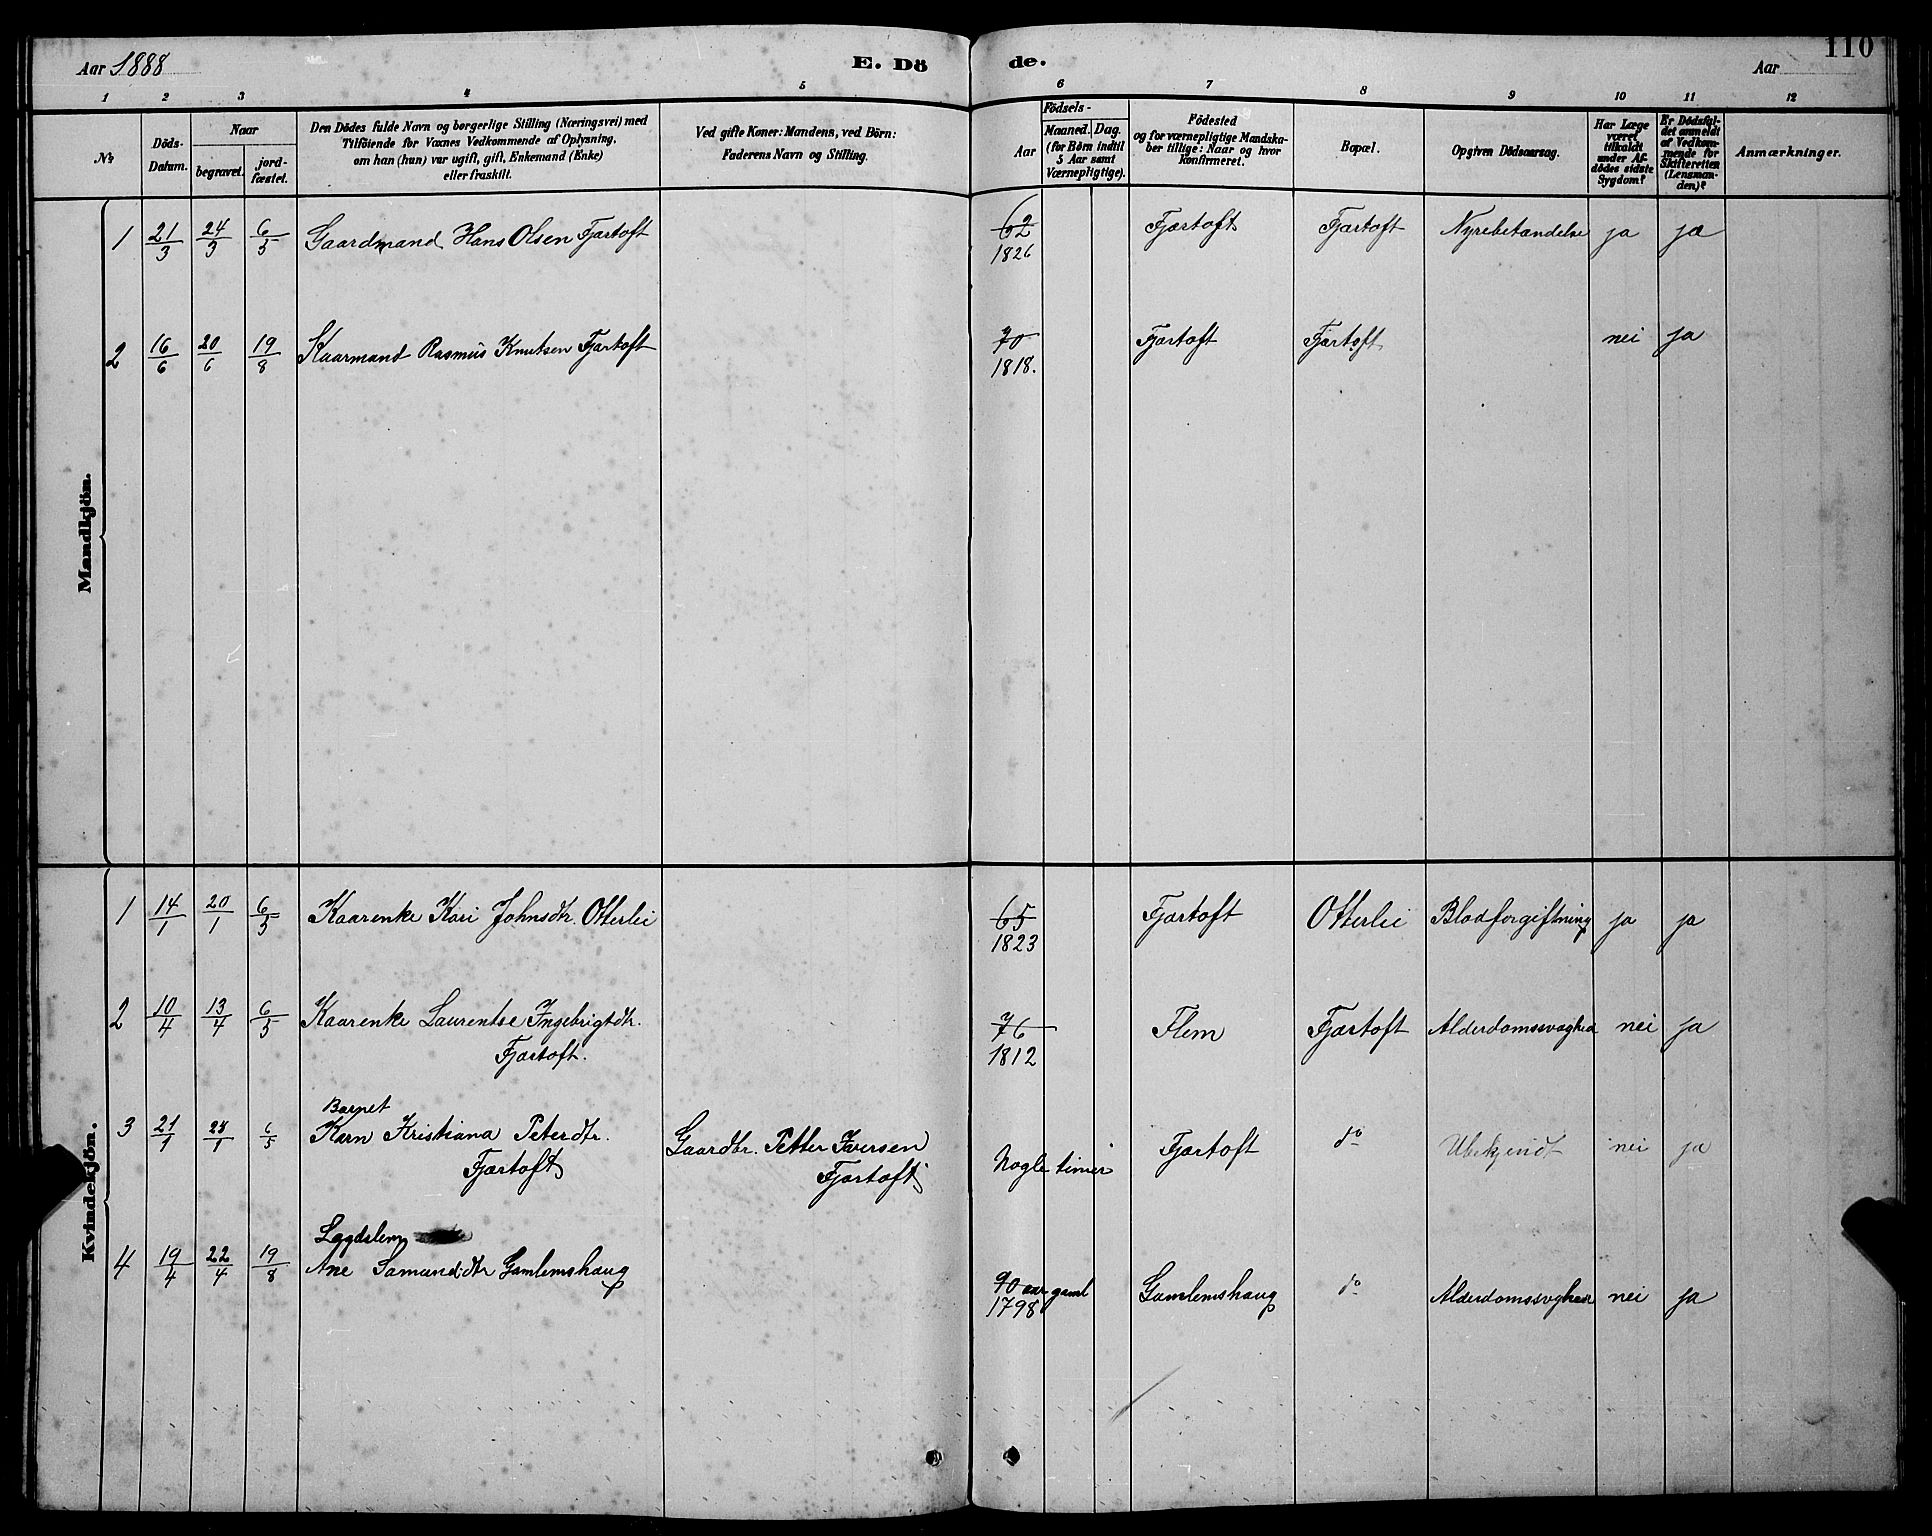 Aar 1888
E. Dö de.
110
Aar
1 2 3 4 5 6 7 8 9 10 11 12
№
Döds-
Datum.
Naar
begravet.
jord-
fæstet.
Den Dödes fulde Navn og borgerlige Stilling (Næringsvei) med
Tilföiende for Voxnes Vedkommende af Oplysning,
om han (hun) var ugift, gift, Enkemand (Enke)
eller fraskilt.
Ved gifte Koner: Mandens, ved Börn:
Faderens Navn og Stilling.
Födsels-
Aar
Maaned. Dag.
(for Börn indtil
5 Aar samt
Værnepligtige).
Födested
og for værnepligtige Mandska-
ber tillige: Naar og hvor
Konfirmeret.
Bopæl.
Opgiven Dödsaarsag.
Har Læge
været
tilkaldt
under Af-
dödes sidste
Sygdom?
Er Dödsfal-
det anmeldt
af Vedkom-
mende for
Skifteretten
(Lensman-
den)?
Anmærkninger.
Mandkjön.
1 21/3 24/3 6/5 Gaardmand Hans Olsen Fjærtoft 62 Fjærtoft Fjærtoft Nyrebetændelse ja ja
1826
2 16/6 20/6 19/8 Kaarmand Rasmus Knutsen Fjærtoft 70 Fjærtoft Fjærtoft nei ja
1818.
Kvindekjön.
1 14/1 20/1 6/5 Kaarenke Kari Johnsdtr. Otterlei 65 Fjærtoft Otterlei Blodforgiftning ja ja
1823
2 10/4 13/4 6/5 Kaarenke Laurentse Ingebrigtdtr. 76 Flem Fjærtoft Alderdomssvaghed nei ja
Fjærtoft. 1812
Barnet
3 21/1 /1 6/5 Karn Kristiana Peterdtr. Gaardbr. Petter Iversen Nogle timer Fjærtoft do Ubekjendt nei ja
Fjærtoft Fjærtoft
Lægdslem
4 19/4 22/4 19/8 Ane Samundsdtr Gamlemshaug 90 aar gaml Gamlemshaug do Alderdomssvghed nei ja
1798